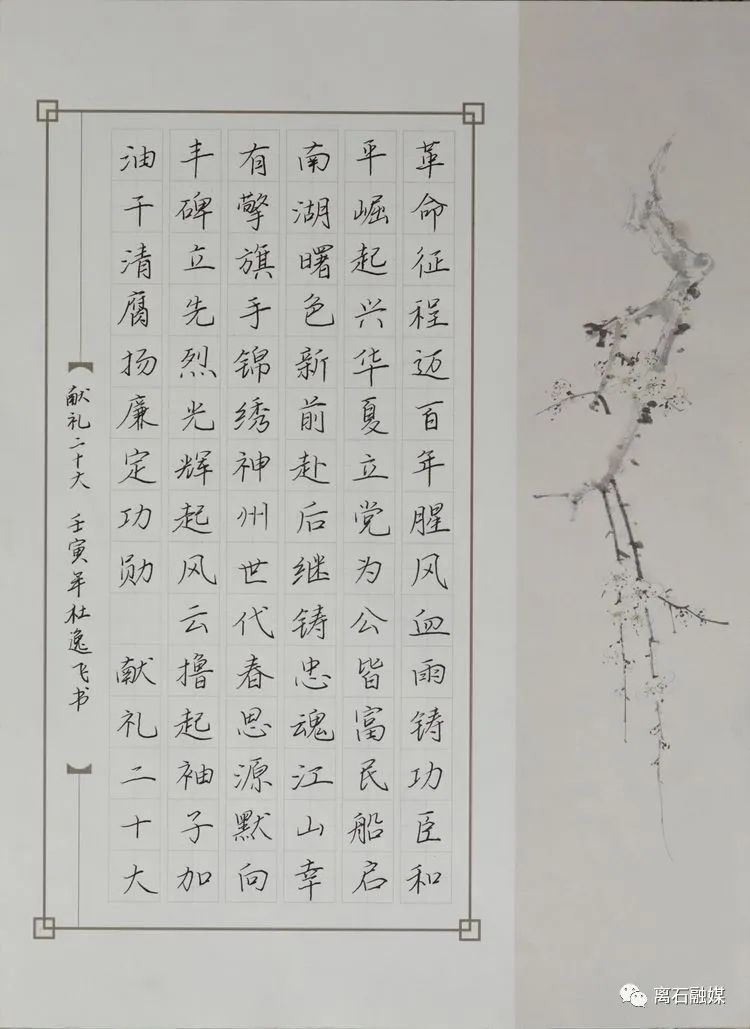 革命征程迈百年腥风血雨铸功臣和
平崛起兴华夏立党为公皆富民船启
南湖曙色新前赴后继铸忠魂江山幸
有擎旗手锦绣神州世代春思源默向
丰碑立先烈光辉起风云撸起袖子加
油干清腐扬廉定功勋 献礼二十大
献礼二十大 壬寅年杜逸飞书
离石融媒